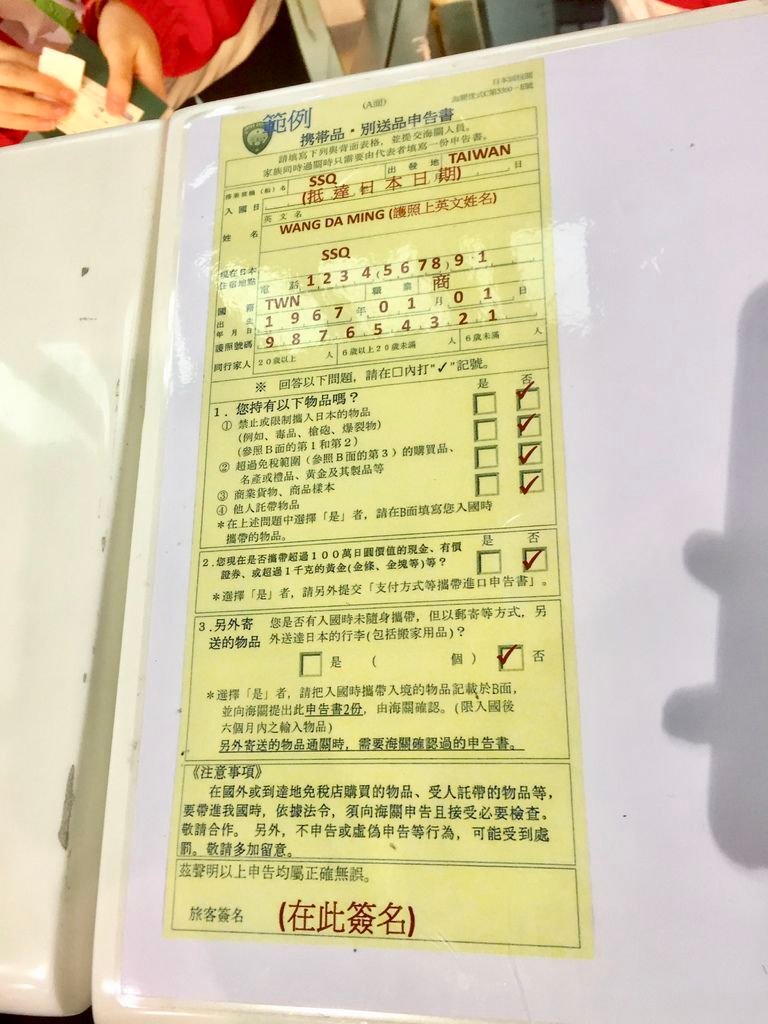 (A面)
日本國稅關
海關樣式C第5360－E號
範例
携帶品・別送品申告書
請填寫下列與背面表格，並提交海關人員。
家族同時過關時只需要由代表者填寫一份申告書。
搭乘班機（船）名 SSQ 出發地 TAIWAN
入國日 (抵達日本日期) 日
姓名 英文名
WANG DA MING (護照上英文姓名)
現在日本住宿地點 SSQ
電話 1 2 3 4 (5 6 7 8) 9 1
國籍 TWN 職業 商
出生年月日 1 9 6 7 年 0 1 月 0 1 日
護照號碼 9 8 7 6 5 4 3 2 1
同行家人 20歲以上 人 6歲以上20歲未滿 人 6歲未滿 人
※ 回答以下問題，請在□內打"✓"記號。
1．您持有以下物品嗎？ 是 否
① 禁止或限制攜入日本的物品
(例如、毒品、槍砲、爆裂物)
(參照B面的第1和第2)
② 超過免稅範圍（參照B面的第3）的購買品、
名產或禮品、黃金及其製品等
③ 商業貨物、商品樣本
④ 他人託帶物品
＊在上述問題中選擇「是」者，請在B面填寫您入國時
攜帶的物品。
是 否
2．您現在是否攜帶超過100萬日圓價值的現金、有價
證券、或超過1千克的黃金(金條、金塊等)等？
＊選擇「是」者，請另外提交「支付方式等攜帶進口申告書」。
3．另外寄送的物品 您是否有入國時未隨身攜帶，但以郵寄等方式，另
外送達日本的行李(包括搬家用品)？
是 ( 個 ) 否
＊選擇「是」者，請把入國時攜帶入境的物品記載於B面，
並向海關提出此申告書2份，由海關確認。(限入國後
六個月內之輸入物品)
另外寄送的物品通關時，需要海關確認過的申告書。
《注意事項》
在國外或到達地免稅店購買的物品、受人託帶的物品等，
要帶進我國時，依據法令，須向海關申告且接受必要檢查。
敬請合作。 另外，不申告或虛偽申告等行為，可能受到處
罰。敬請多加留意。
茲聲明以上申告均屬正確無誤。
旅客簽名 (在此簽名)